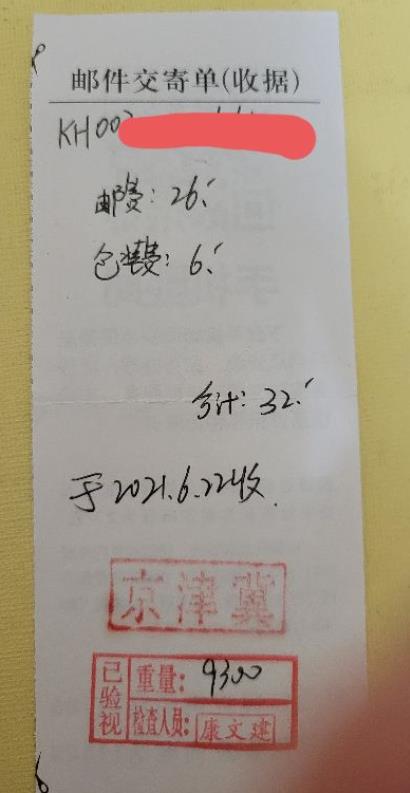 邮件交寄单(收据)
KH002
邮费: 26.
包装费: 6.
合计: 32.
于2021.6.22收.
京津冀
已验视
重量: 9300
检查人员: 康文建